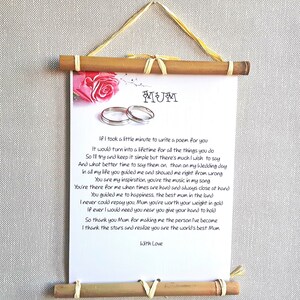 MUM
If I took a little minute to write a poem for you
It would turn into a lifetime for all the things you do
So I'll try and keep it simple but there's much I wish to say
And what better time to say them on, than on my wedding day
In all my life you guided me and showed me right from wrong
You are my inspiration, you're the music in my song
You're there for me when times are hard and always close at hand
You guided me to happiness, the best mum in the land
I never could repay you, Mum you're worth your weight in gold
If ever I would need you near you give your hand to hold
So thank you Mum for making me the person I've become
I thank the stars and realize you are the world's best Mum.
With Love